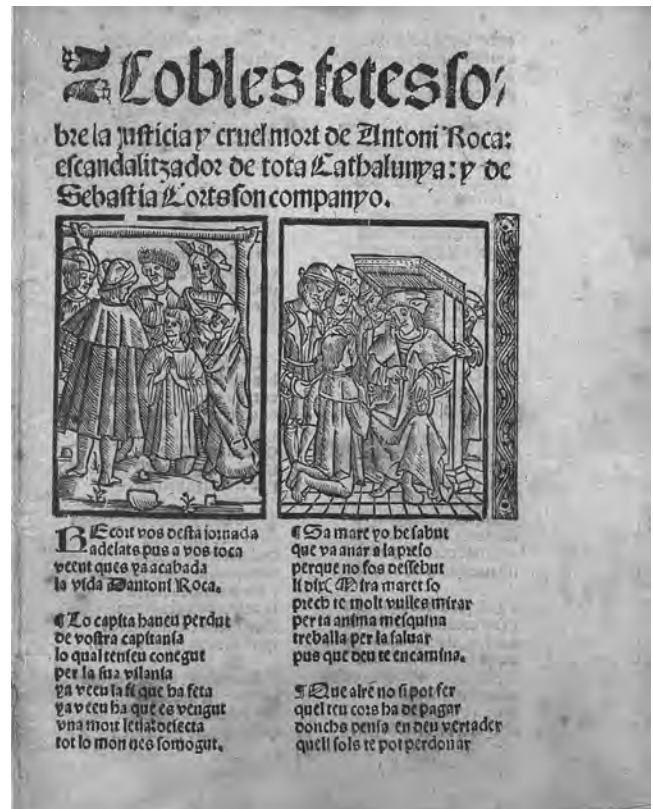 Cobles fetes so/
bre la justicia y cruel mort de Antoni Roca:
escandalitzador de tota Cathalunya: y de
Sebastia Corts son companyo.
REcort vos desta jornada
adelats pus a vos toca
veent ques ya acabada
la vida Dantoni Roca.
¶ Lo capita haueu perdut
de vostra capitania
lo qual tenieu conegut
per la sua vilania
ya veeu la fi que ha feta
ya veeu ha que es vengut
vna mort letia
tot lo mon nes somogut.
¶ Sa mare yo he sabut
que va anar a la preso
perque no fos dessebut
li dix Mira maret so
prech te molt vulles mirar
per ta anima mesquina
treballa per la saluar
pus que deu te encamina.
¶ Que alre no si pot fer
quel teu cors ha de pagar
donchs pensa en deu vertader
quell sols te pot perdonar